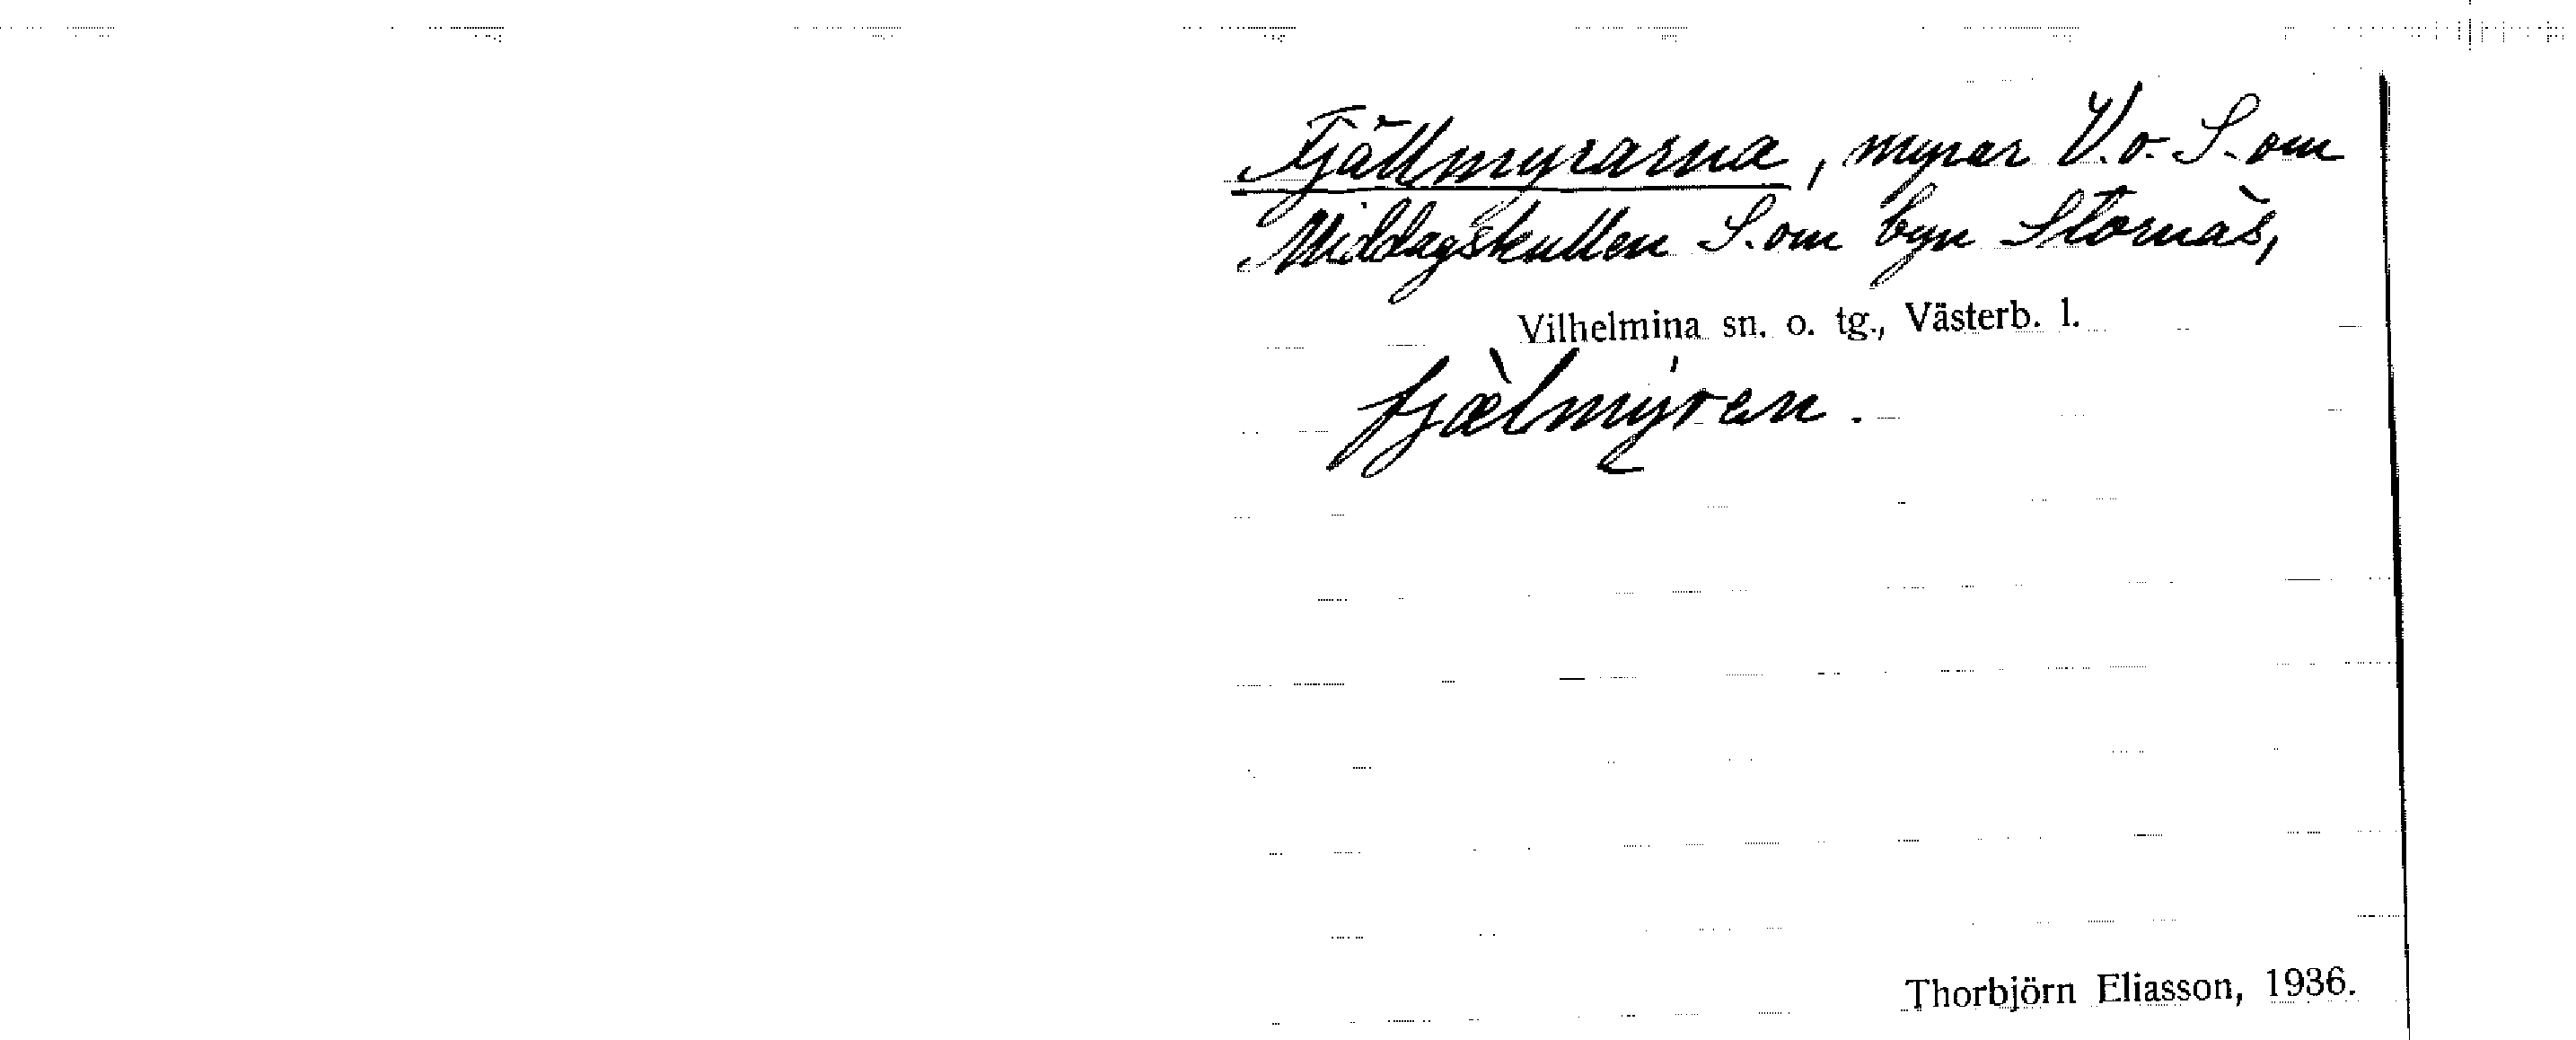 Fjällmyrarna, myrar V. o. S. om
Middagskullen S. om byn Stornäs,
Vilhelmina sn. o. tg., Västerb. l.
fjæ̀lmýran.
Thorbjörn Eliasson, 1936.